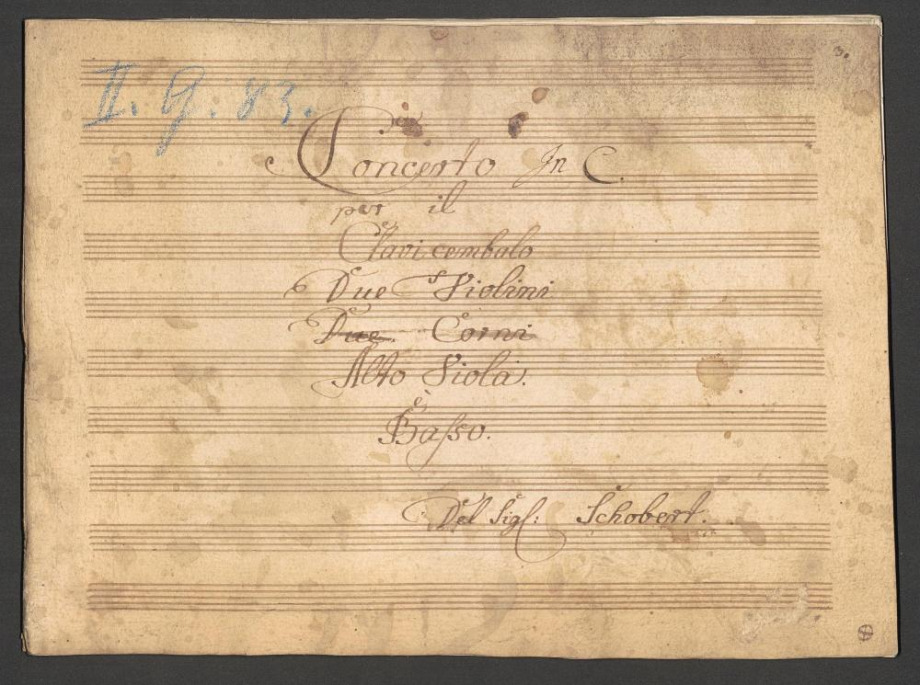 3.
II. G. 83.
Concerto In C.
per il
Clavicembalo
Due Violini
Due Corni
Alto Viola.
è
Baſso.
Del Sigl: Schobert.